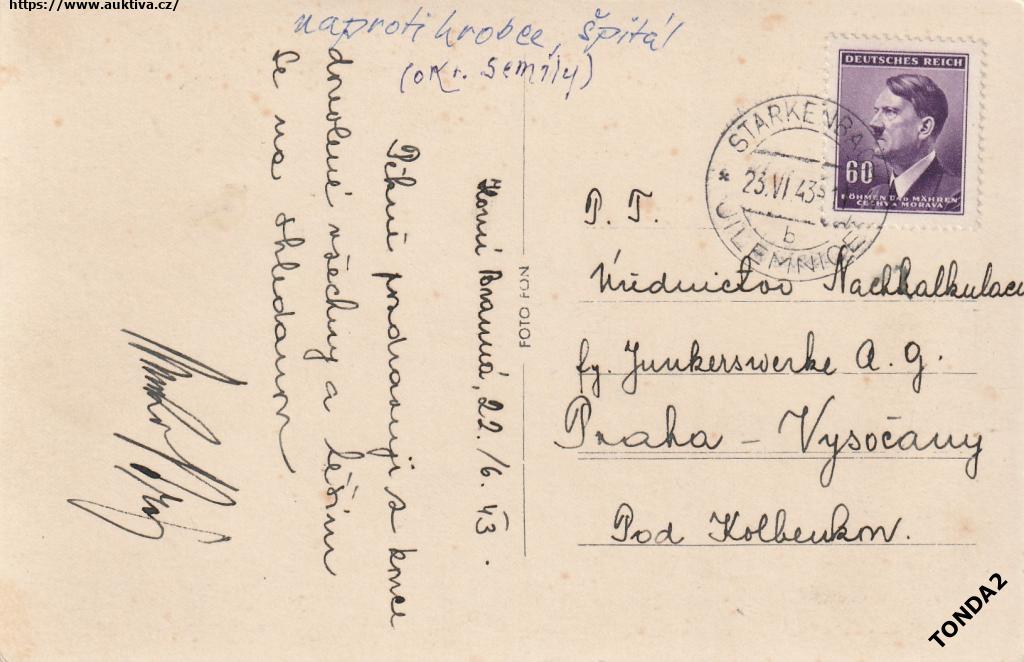 https://www.auktiva.cz/
naproti hrobce, špitál
(okr. Semily)
Horní Branná, 22./6. 43.
Pěkně pozdravuji z konce
dovolené všechny a těším
se na shledanou
FOTO FON
DEUTSCHES REICH
60
BÖHMEN UND MÄHREN
ČECHY A MORAVA
STARKENBACH
* 23.VI.43
b
JILEMNICE
P. T.
Úřednictvo Nachkalkulace
fy. Junkerswerke A. G.
Praha – Vysočany
Pod Kolbenkou.
TONDA2